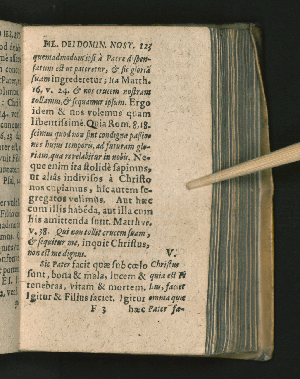 FIL. DEI DOMIN. NOST. 125
quemadmodum ipsi à Patre dispen-
satum est ut pateretur, & sic gloriā
suam ingrederetur; ita Matth.
16, v. 24. & nos crucem nostram
tollamus, & sequamur ipsum. Ergo
idem & nos volemus quam
libentissimè. Quia Rom. 8. 18.
scimus quod non sint condignæ passio-
nes hujus temporis, ad futuram glo-
riam, quæ revelabitur in nobis. Ne-
que enim ita stolidè sapimus,
ut alias indivisos à Christo
nos cupiamus, hîc autem se-
gregatos velimus. Aut hæc
cum illis habēda, aut illa cum
his amittenda sunt. Matth. 10.
v. 38. Qui non tollit crucem suam,
& sequitur me, inquit Christus,
non est me dignus. V.
Sic Pater facit quæ sub cœlo Christus
sunt, bona & mala, lucem & quia est Fi
tenebras, vitam & mortem. lius, faciet
Igitur & Filius faciet. Igitur omnia quæ
F 3 hæc Pater fa-